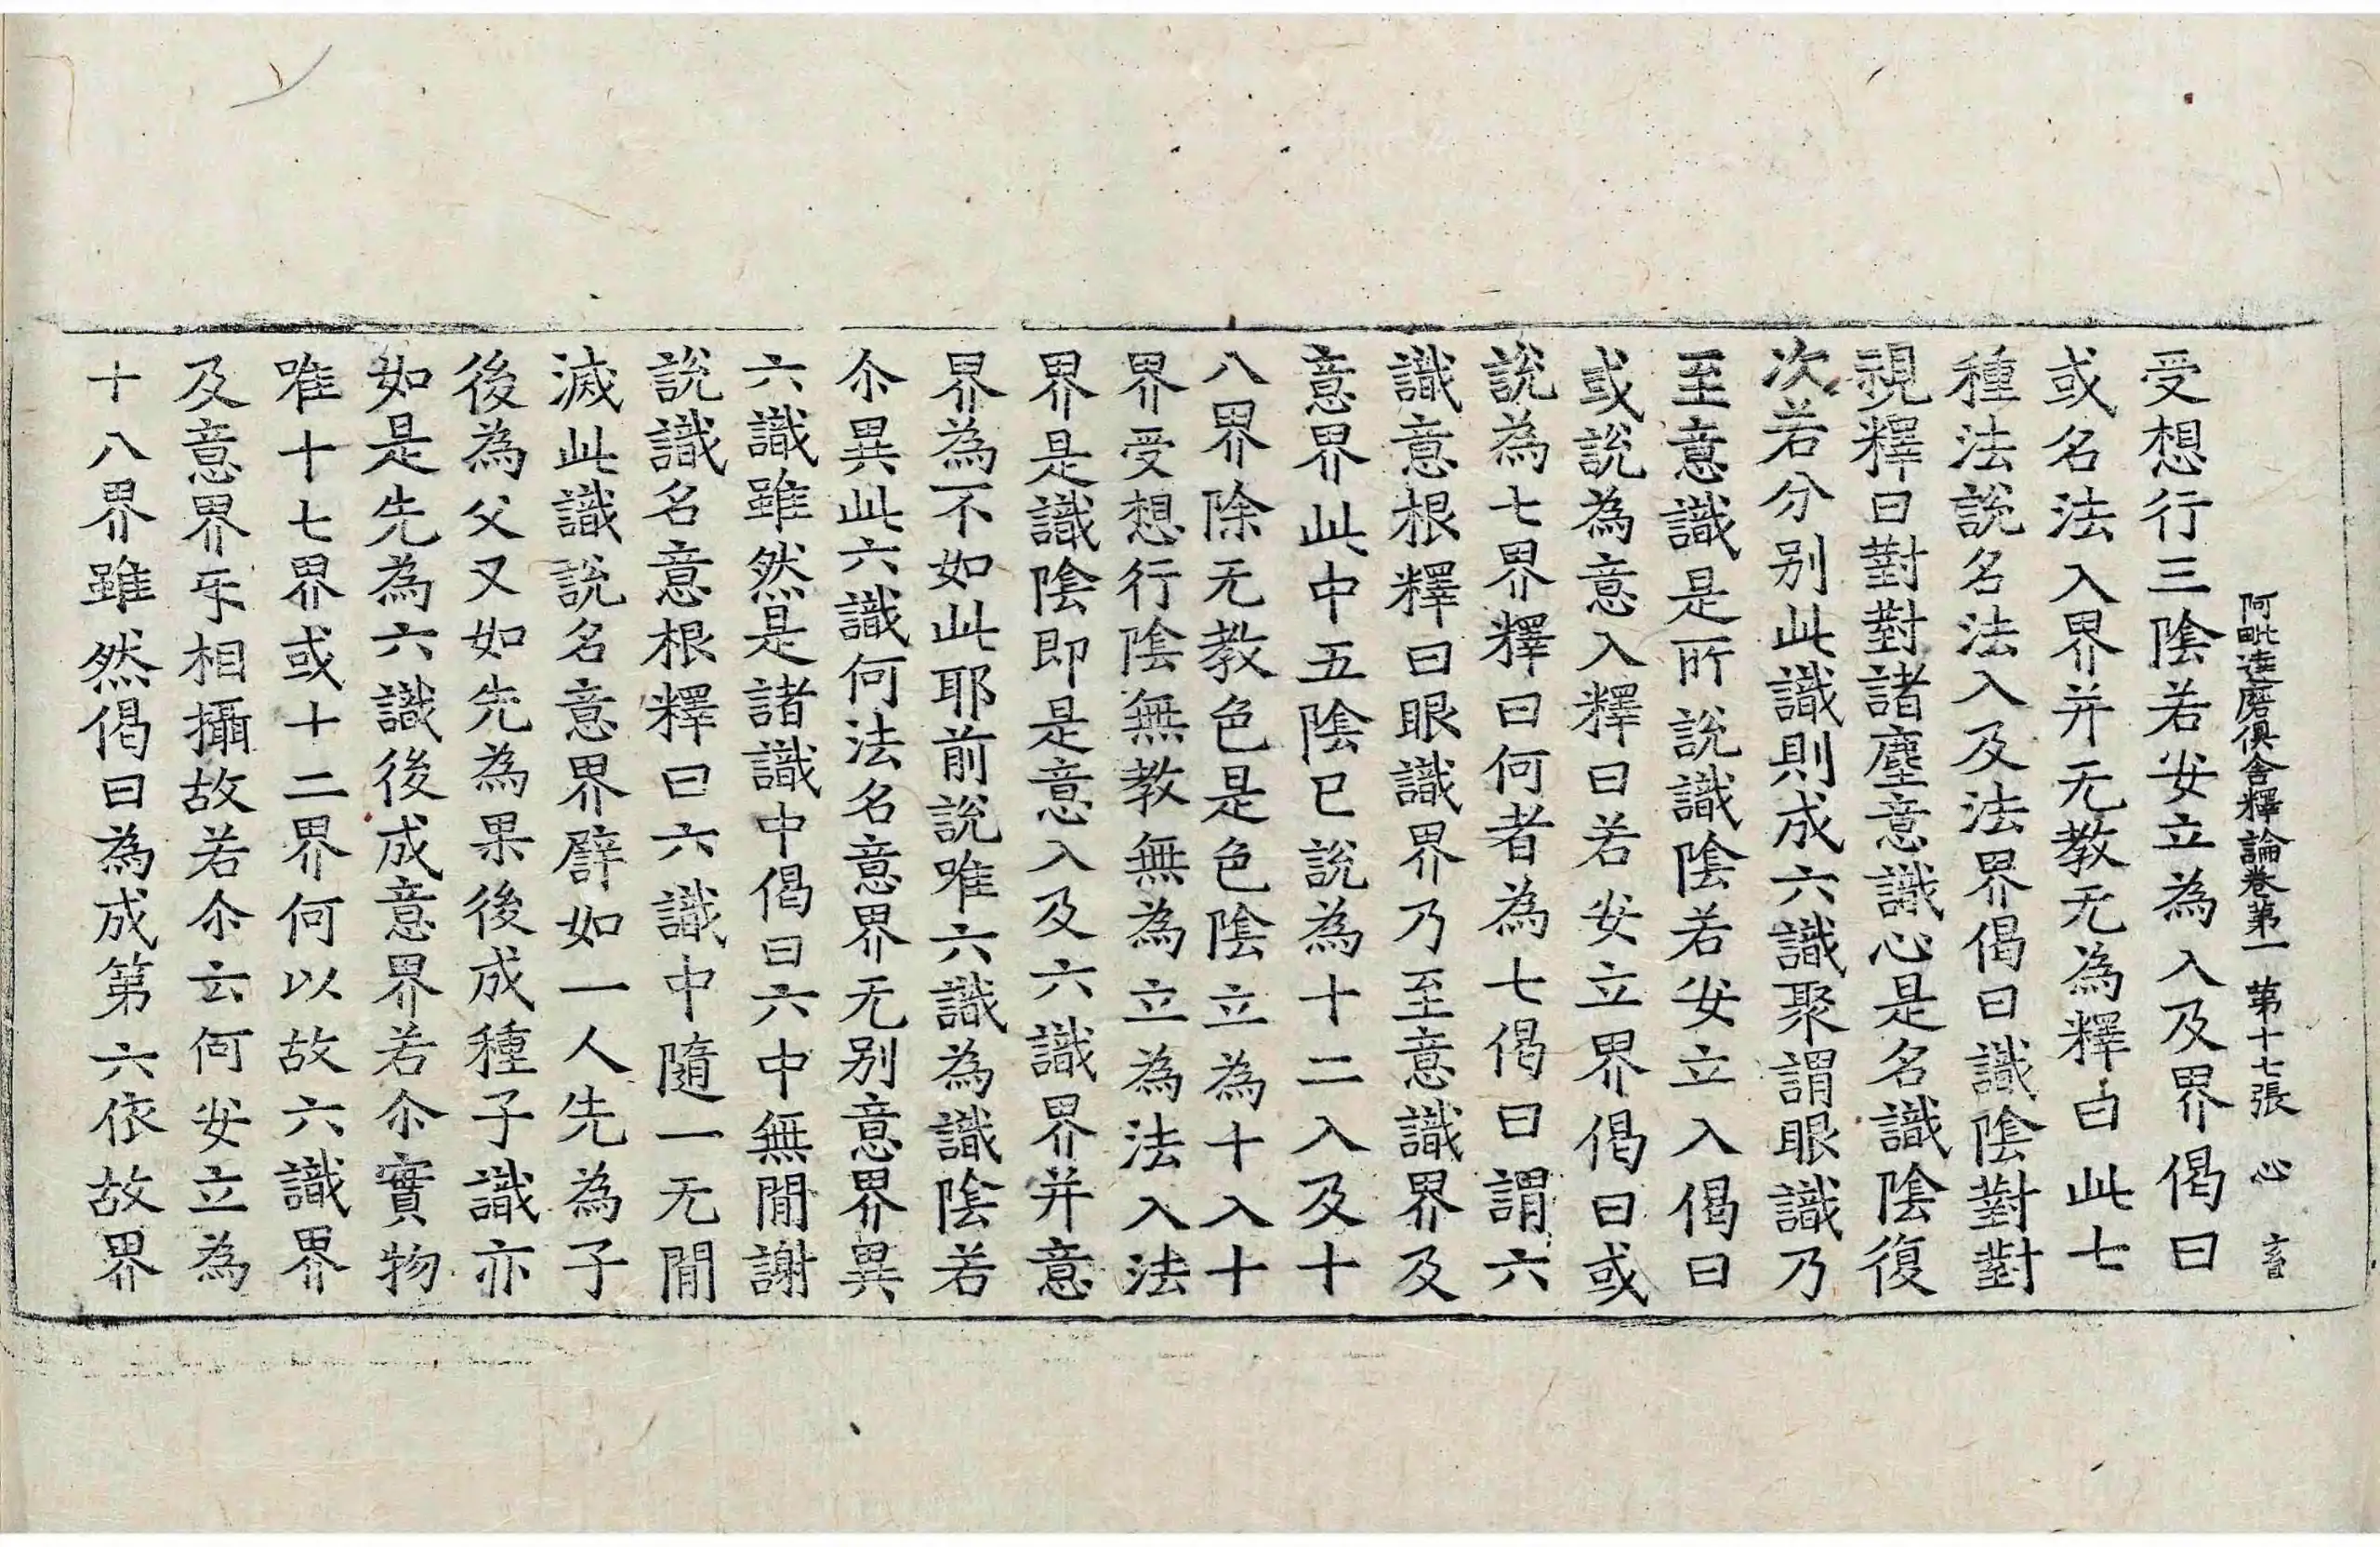 阿毗達磨俱舍釋論卷第一 第十七張 心 畜
受想行三陰若安立為入及界偈曰
或名法入界并无教无為釋曰此七
種法說名法入及法界偈曰識陰對對
視釋曰對對諸塵意識心是名識陰復
次若分別此識則成六識聚謂眼識乃
至意識是所說識陰若安立入偈曰
或說為意入釋曰若安立界偈曰或
說為七界釋曰何者為七偈曰謂六
識意根釋曰眼識界乃至意識界及
意界此中五陰已說為十二入及十
八界除无教色是色陰立為十入十
界受想行陰無教無為立為法入法
界是識陰即是意入及六識界并意
界為不如此耶前說唯六識為識陰若
尒異此六識何法名意界无別意界異
六識雖然是諸識中偈曰六中無間謝
說識名意根釋曰六識中隨一无間
滅此識說名意界譬如一人先為子
後為父又如先為果後成種子識亦
如是先為六識後成意界若尒實物
唯十七界或十二界何以故六識界
及意界㸦相攝故若尒云何安立為
十八界雖然偈曰為成第六依故界